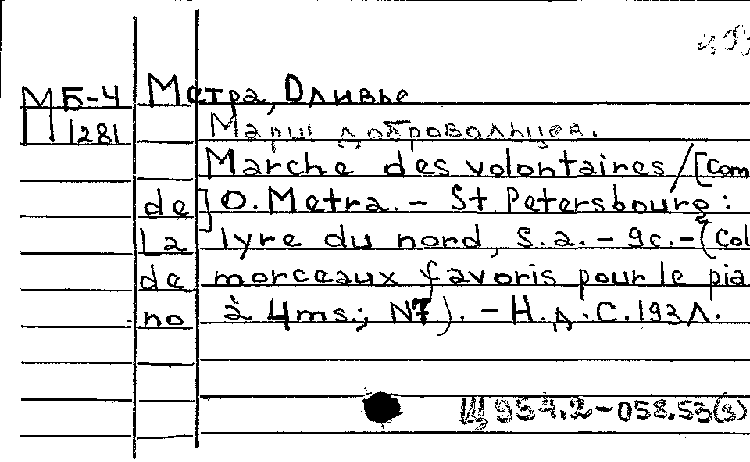 МБ-4 Метра, Оливье
П 1281 Марш добровольцев.
Marche des volontaires / [Com
de] O. Metra. - St Petersbourg:
La lyre du nord, s.a. - 9c. - (Col
de morceaux favoris pour le pia
no à 4ms.; N7). - Н.д.С.193Л.
Щ954.2-058.53(3)